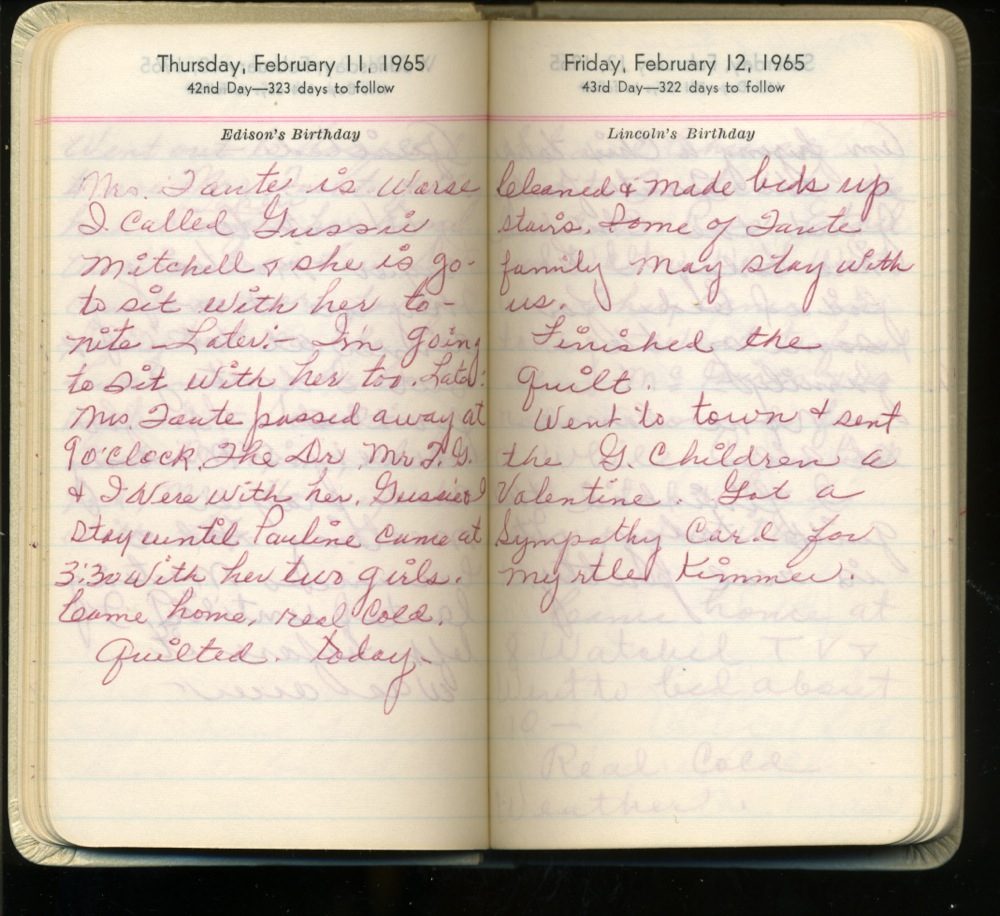 Thursday, February 11, 1965
42nd Day—323 days to follow
Edison's Birthday
Mrs. Tante is worse
I called Gussie
Mitchell & she is go-
to sit with her to-
nite – Later:– I'm going
to sit with her too. Later:
Mrs. Tante passed away at
9 o'clock. The Dr. Mr. T. G.
& I were with her. Gussie & I
stay until Pauline came at
3:30 with her two girls.
Came home, real cold.
Quilted. today.
Friday, February 12, 1965
43rd Day—322 days to follow
Lincoln's Birthday
Cleaned & made beds up
stairs. Some of Tante
family may stay with
us.
Finished the
quilt.
Went to town & sent
the G. Children a
Valentine. Got a
Sympathy Card for
Myrtle Kimmer.
came home at
Watched T V &
went to bed about
10 –
Real Cold
Weather.